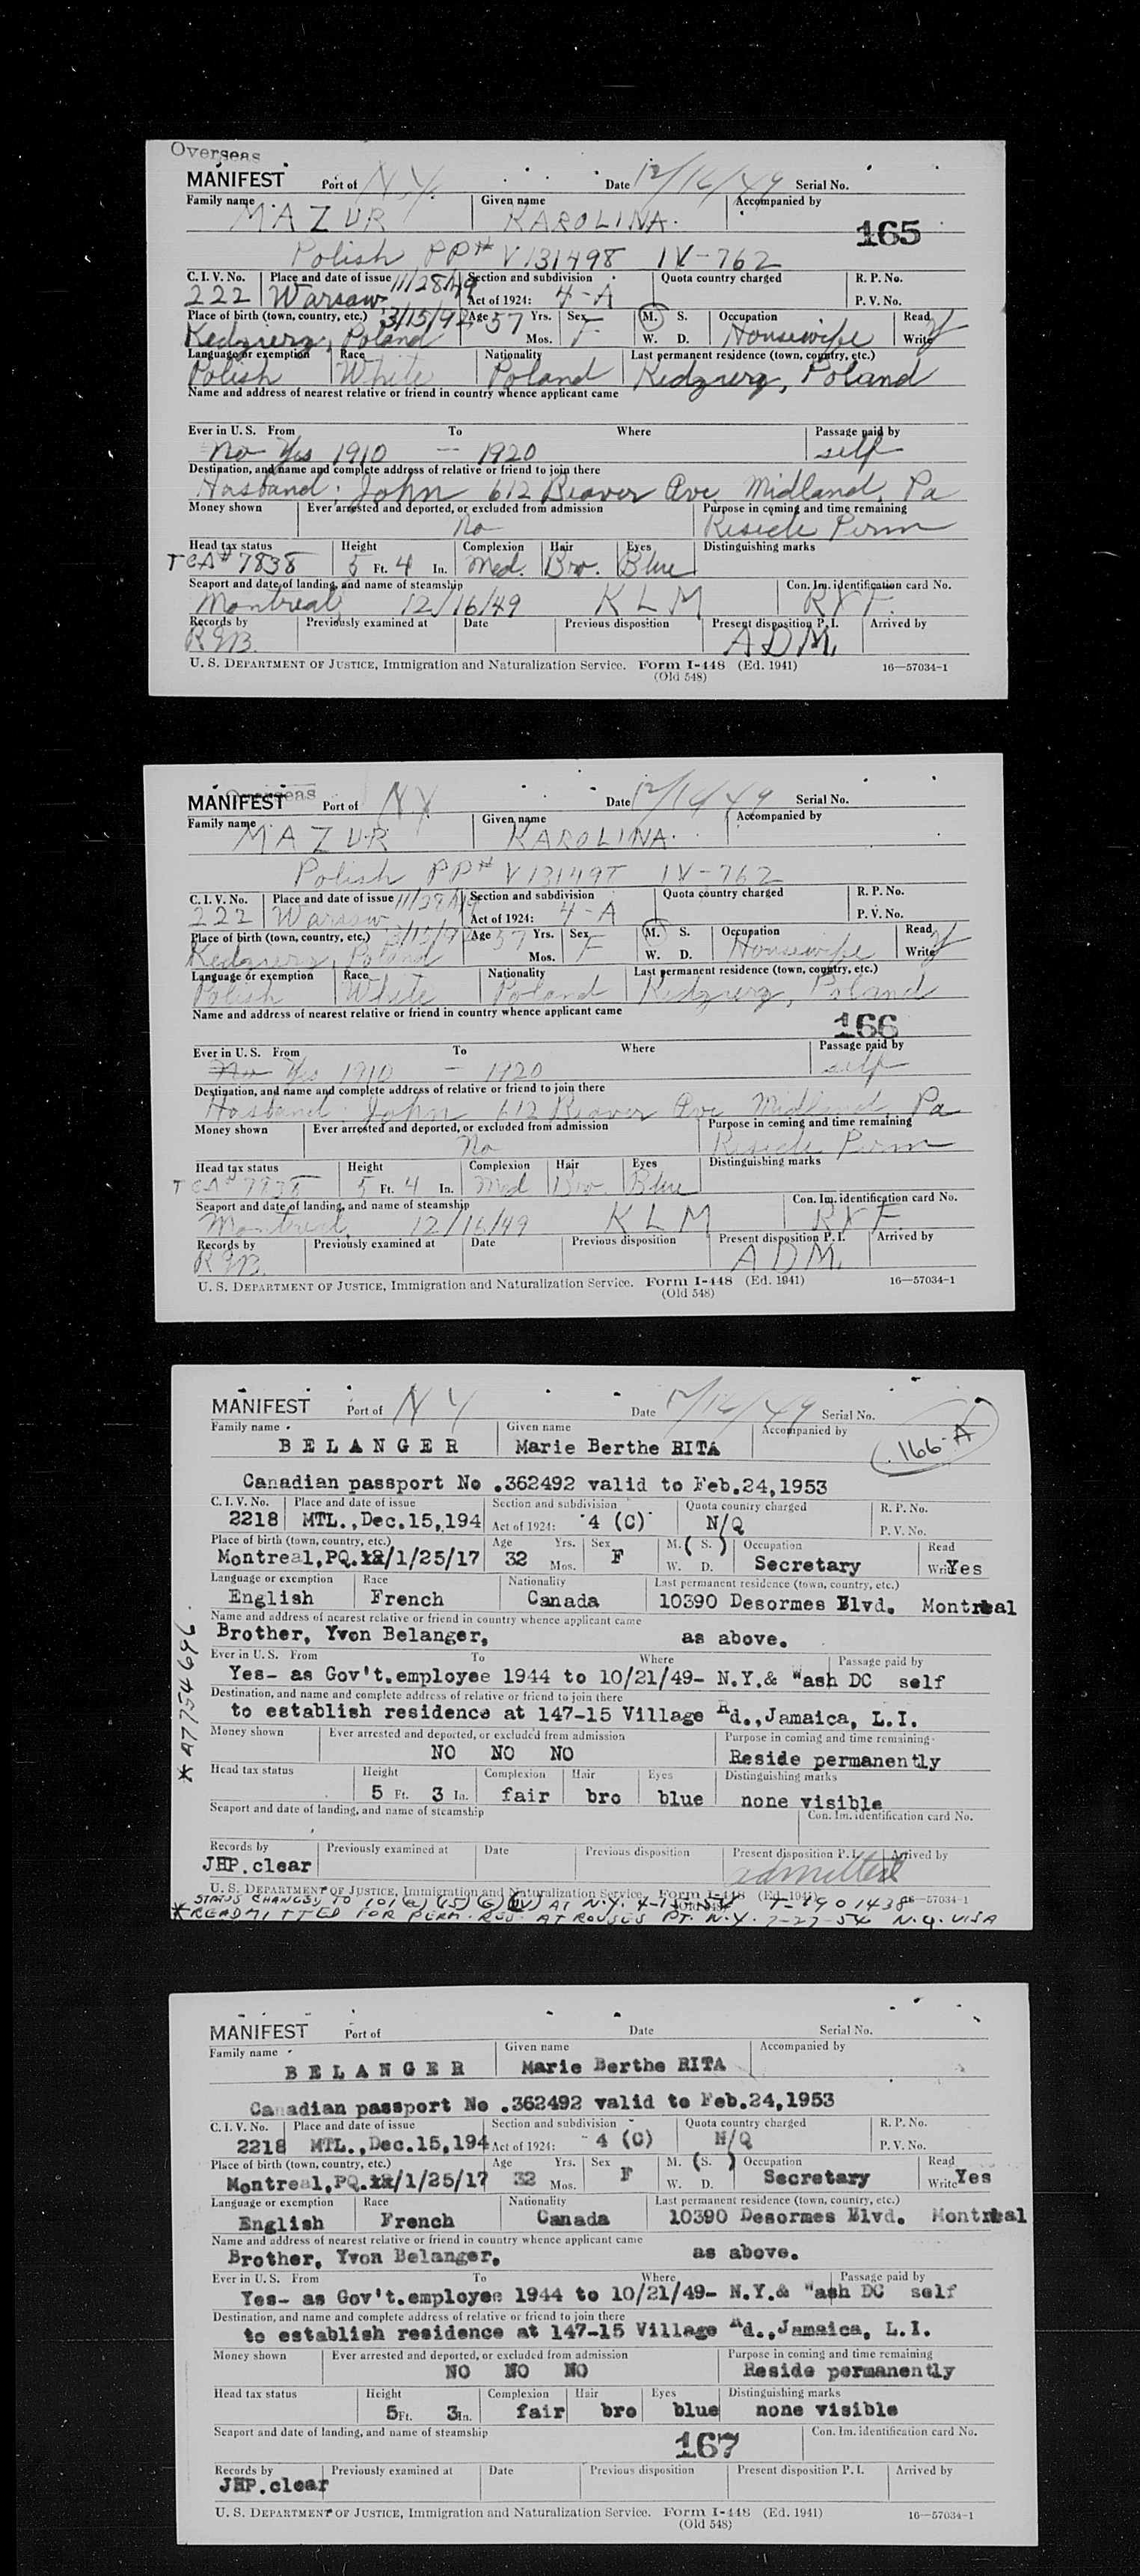 Overseas
MANIFEST Port of N.Y. Date 12/16/49 Serial No.
Family name MAZUR Given name KAROLINA. Accompanied by
165
Polish PP# V131498 IV-762
C. I. V. No. Place and date of issue 11/28/49 Section and subdivision Quota country charged R. P. No.
222 Warsaw Act of 1924: 4-A P. V. No.
Place of birth (town, country, etc.) 3/15/92 Age 57 Yrs. Sex F M. S. Occupation Read Y
Kedzierz, Poland Mos. W. D. Housewife Write
Language or exemption Race Nationality Last permanent residence (town, country, etc.)
Polish White Poland Kedzierz, Poland
Name and address of nearest relative or friend in country whence applicant came
Ever in U. S. From To Where Passage paid by
No Yes 1910 - 1920 self
Destination, and name and complete address of relative or friend to join there
Husband: John 612 Beaver Ave Midland, Pa
Money shown Ever arrested and deported, or excluded from admission Purpose in coming and time remaining
No Reside Perm
Head tax status Height Complexion Hair Eyes Distinguishing marks
TCA# 7838 5 Ft. 4 In. Med. Bro. Blue
Seaport and date of landing, and name of steamship Con. Im. identification card No.
Montreal, 12/16/49 KLM RXF.
Records by Previously examined at Date Previous disposition Present disposition P. I. Arrived by
RGB. ADM.
U. S. DEPARTMENT OF JUSTICE, Immigration and Naturalization Service. Form I-448 (Ed. 1941) 16—57034-1
(Old 548)
Overseas
MANIFEST Port of NY Date 12/16/49 Serial No.
Family name MAZUR Given name KAROLINA. Accompanied by
Polish PP# V131498 IV-762
C. I. V. No. Place and date of issue 11/28/49 Section and subdivision Quota country charged R. P. No.
222 Warsaw Act of 1924: 4-A P. V. No.
Place of birth (town, country, etc.) 3/15/92 Age 57 Yrs. Sex F M. S. Occupation Read Y
Kedzierz, Poland Mos. W. D. Housewife Write
Language or exemption Race Nationality Last permanent residence (town, country, etc.)
Polish White Poland Kedzierz, Poland
Name and address of nearest relative or friend in country whence applicant came
166
Ever in U. S. From To Where Passage paid by
No Yes 1910 - 1920 self
Destination, and name and complete address of relative or friend to join there
Husband: John 612 Beaver Ave Midland, Pa
Money shown Ever arrested and deported, or excluded from admission Purpose in coming and time remaining
No Reside Perm
Head tax status Height Complexion Hair Eyes Distinguishing marks
TCA# 7838 5 Ft. 4 In. Med Bro. Blue
Seaport and date of landing, and name of steamship Con. Im. identification card No.
Montreal, 12/16/49 KLM RXF.
Records by Previously examined at Date Previous disposition Present disposition P. I. Arrived by
RGB. ADM.
U. S. DEPARTMENT OF JUSTICE, Immigration and Naturalization Service. Form I-448 (Ed. 1941) 16—57034-1
(Old 548)
MANIFEST Port of NY Date 12/16/49 Serial No.
Family name Given name Accompanied by 166-A
BELANGER Marie Berthe RITA
Canadian passport No .362492 valid to Feb.24,1953
C. I. V. No. Place and date of issue Section and subdivision Quota country charged R. P. No.
2218 MTL.,Dec.15,194 Act of 1924: 4 (C) N/Q P. V. No.
Place of birth (town, country, etc.) Age Yrs. Sex M. ( S. ) Occupation Read
Montreal,PQ.12/1/25/17 32 Mos. F W. D. Secretary Write Yes
Language or exemption Race Nationality Last permanent residence (town, country, etc.)
English French Canada 10390 Desormes Blvd. Montreal
Name and address of nearest relative or friend in country whence applicant came
Brother, Yvon Belanger, as above.
Ever in U. S. From To Where Passage paid by
Yes- as Gov't.employee 1944 to 10/21/49- N.Y.& Wash DC self
Destination, and name and complete address of relative or friend to join there
to establish residence at 147-15 Village Rd.,Jamaica, L.I.
Money shown Ever arrested and deported, or excluded from admission Purpose in coming and time remaining
NO NO NO Reside permanently
Head tax status Height Complexion Hair Eyes Distinguishing marks
5 Ft. 3 In. fair bro blue none visible
Seaport and date of landing, and name of steamship Con. Im. identification card No.
Records by Previously examined at Date Previous disposition Present disposition P. I. Arrived by
JHP.clear admitted
U. S. DEPARTMENT OF JUSTICE, Immigration and Naturalization Service. Form I-448 (Ed. 1941) 16—57034-1
STATUS CHANGED TO 101 (a) (15) (G) (IV) AT N.Y.
*READMITTED FOR PERM. RES. AT ROUSES PT. N.Y. 7-27-54 N.Q. VISA
MANIFEST Port of Date Serial No.
Family name Given name Accompanied by
BELANGER Marie Berthe RITA
Canadian passport No .362492 valid to Feb.24,1953
C. I. V. No. Place and date of issue Section and subdivision Quota country charged R. P. No.
2218 MTL.,Dec.15,194 Act of 1924: 4 (C) N/Q P. V. No.
Place of birth (town, country, etc.) Age Yrs. Sex M. ( S. ) Occupation Read
Montreal,PQ.12/1/25/17 32 Mos. F W. D. Secretary Write Yes
Language or exemption Race Nationality Last permanent residence (town, country, etc.)
English French Canada 10390 Desormes Blvd. Montreal
Name and address of nearest relative or friend in country whence applicant came
Brother, Yvon Belanger, as above.
Ever in U. S. From To Where Passage paid by
Yes- as Gov't.employee 1944 to 10/21/49- N.Y.& Wash DC self
Destination, and name and complete address of relative or friend to join there
to establish residence at 147-15 Village Rd.,Jamaica, L.I.
Money shown Ever arrested and deported, or excluded from admission Purpose in coming and time remaining
NO NO NO Reside permanently
Head tax status Height Complexion Hair Eyes Distinguishing marks
5 Ft. 3 In. fair bro blue none visible
Seaport and date of landing, and name of steamship 167 Con. Im. identification card No.
Records by Previously examined at Date Previous disposition Present disposition P. I. Arrived by
JHP.clear
U. S. DEPARTMENT OF JUSTICE, Immigration and Naturalization Service. Form I-448 (Ed. 1941) 16—57034-1
(Old 548)